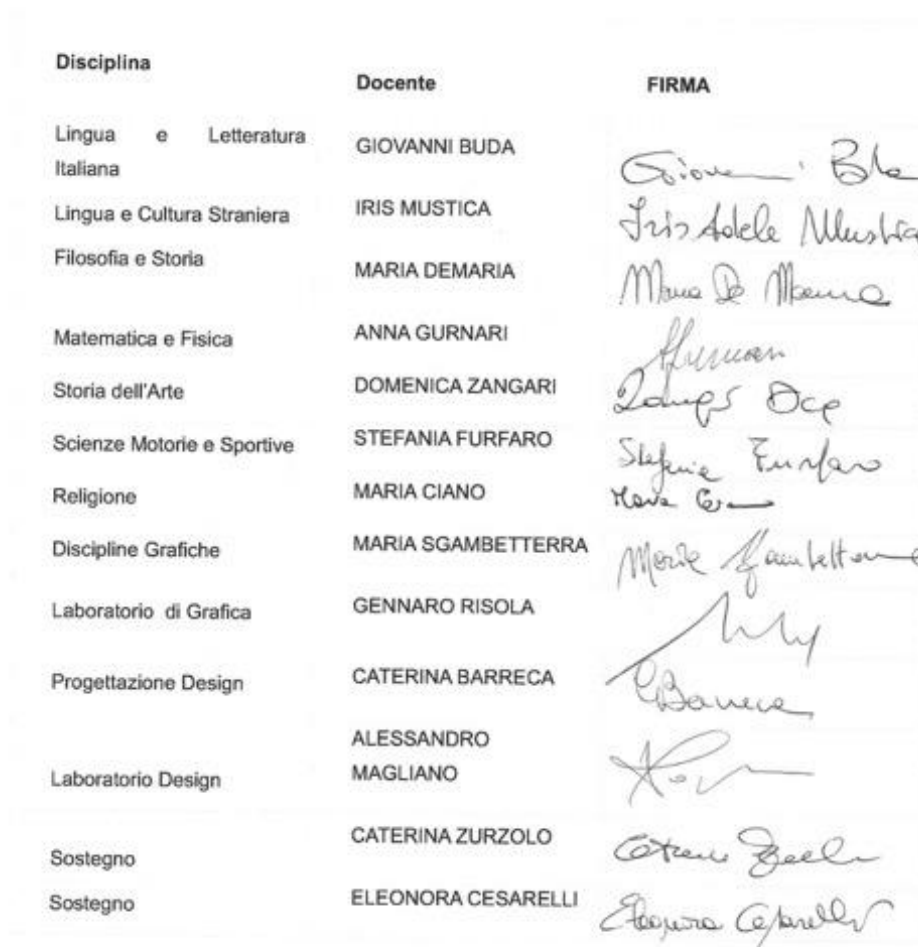 Disciplina
Docente FIRMA
Lingua e Letteratura
Italiana
GIOVANNI BUDA Giovanni Buda
Lingua e Cultura Straniera IRIS MUSTICA Iris Adele Mustica
Filosofia e Storia
MARIA DEMARIA Maria De Maria
Matematica e Fisica ANNA GURNARI
Storia dell'Arte DOMENICA ZANGARI
Scienze Motorie e Sportive STEFANIA FURFARO Stefania Furfaro
Religione MARIA CIANO Maria
Discipline Grafiche MARIA SGAMBETTERRA Maria Sgambetterra
Laboratorio di Grafica GENNARO RISOLA
Progettazione Design CATERINA BARRECA CBarreca
ALESSANDRO
Laboratorio Design MAGLIANO
Sostegno CATERINA ZURZOLO
Sostegno ELEONORA CESARELLI Eleonora Cesarelli